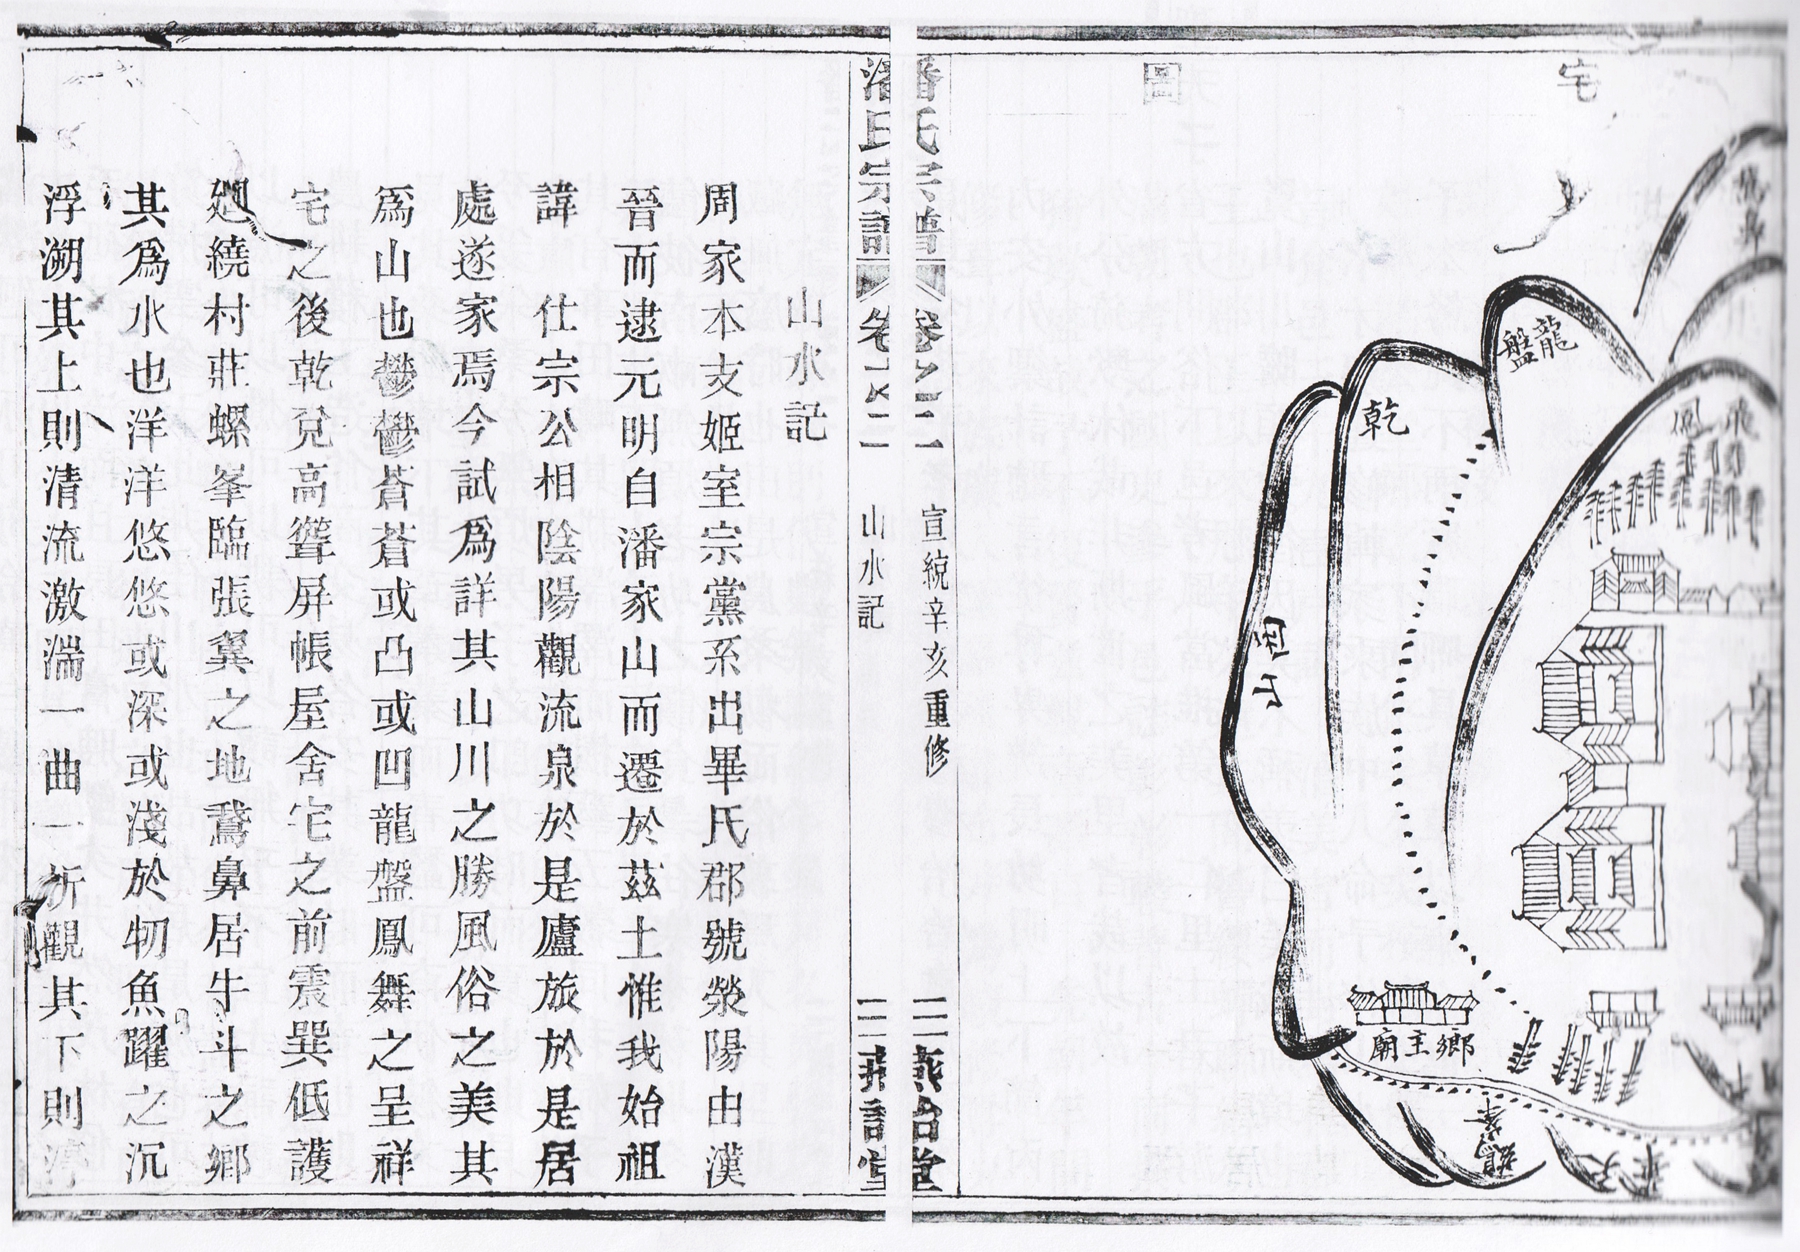 宅
圖
龍盤
飛鳳
乾
鄉主廟
潘氏宗譜
卷之二
宣統辛亥重修
三
燕詒堂
山水記
山水記
周家本支姬室宗黨系出畢氏郡號滎陽由漢
晉而逮元明自潘家山而遷於茲土惟我始祖
諱 仕宗公相陰陽觀流泉於是廬旅於是居
處遂家焉今試爲詳其山川之勝風俗之美其
爲山也鬱鬱蒼蒼或凸或凹龍盤鳳舞之呈祥
宅之後乾兌高聳屏帳屋舍宅之前震巽低護
廻繞村莊螺峯臨張翼之地鵞鼻居牛斗之鄉
其爲水也洋洋悠悠或深或淺於牣魚躍之沉
浮溯其上則清流激湍一曲一折觀其下則